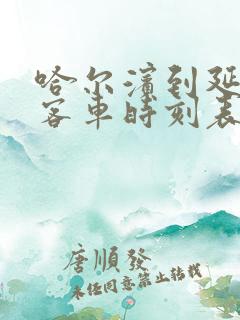 哈尔滨到延
客车时刻表
唐顺发
未经同意禁止转载